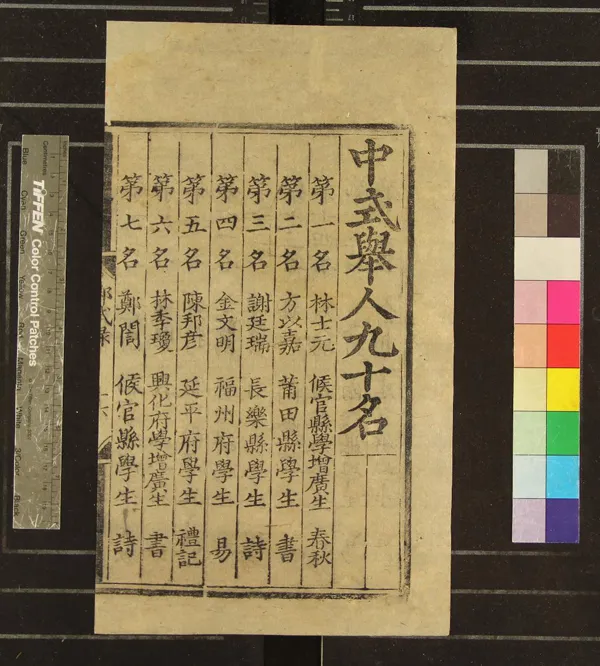 中式舉人九十名
第一名 林士元 候官縣學增廣生 春秋
第二名 方以嘉 莆田縣學生 書
第三名 謝廷瑞 長樂縣學生 詩
第四名 金文明 福州府學生 易
第五名 陳邦彦 延平府學生 禮記
第六名 林季瓊 興化府學增廣生 書
第七名 鄭誾 候官縣學生 詩
TIFFEN Color Control Patches
Centimetres
Blue
Green
Yellow
White
3/Color
Black